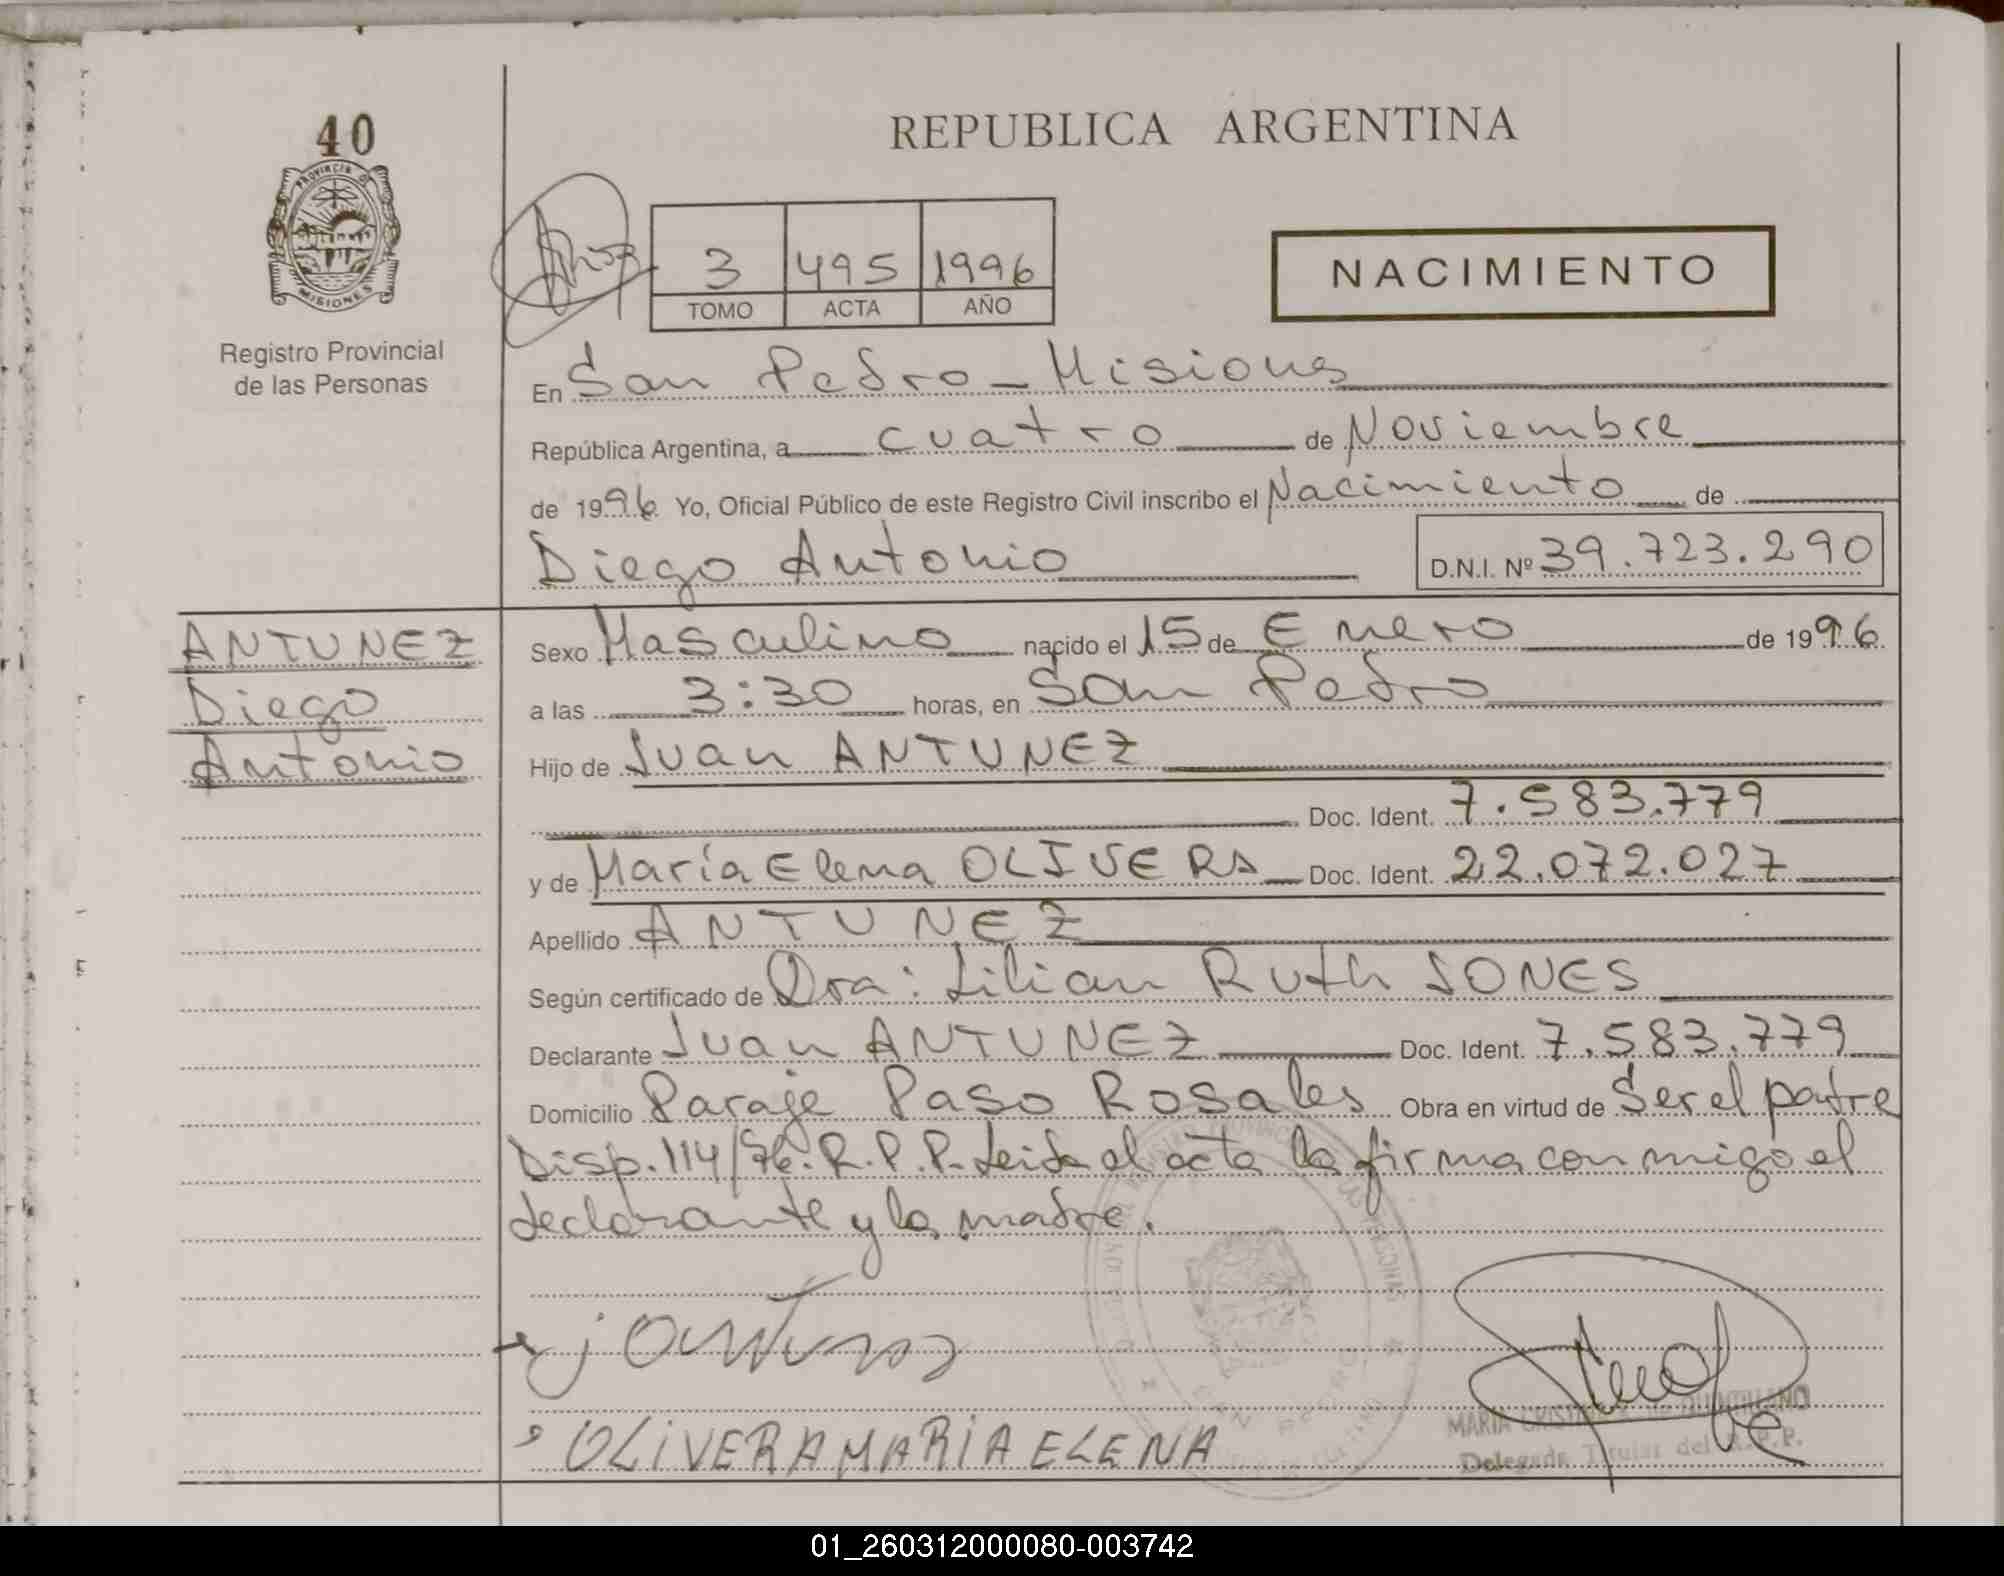 40
REPUBLICA ARGENTINA
PROVINCIA D
MISIONES
Registro Provincial
de las Personas
3 495 1996
TOMO ACTA AÑO
NACIMIENTO
En San Pedro - Misiones
República Argentina, a cuatro de Noviembre
de 1996 Yo, Oficial Público de este Registro Civil inscribo el Nacimiento de
Diego Antonio D.N.I. Nº 39.723.290
ANTUNEZ
Diego
Antonio
Sexo Masculino nacido el 15 de Enero de 1996
a las 3:30 horas, en San Pedro
Hijo de Juan ANTUNEZ
Doc. Ident. 7.583.779
y de María Elena OLIVERA Doc. Ident. 22.072.027
Apellido ANTUNEZ
Según certificado de Dra: Lilian Ruth JONES
Declarante Juan ANTUNEZ Doc. Ident. 7.583.779
Domicilio Paraje Paso Rosales Obra en virtud de Ser el padre
Disp. 114/96. R.P.P. Leida el acta la firma conmigo el
declarante y la madre.
OLIVERA MARIA ELENA
MARIA CRISTINA
Delegada Titular del R.P.P.
01_260312000080-003742